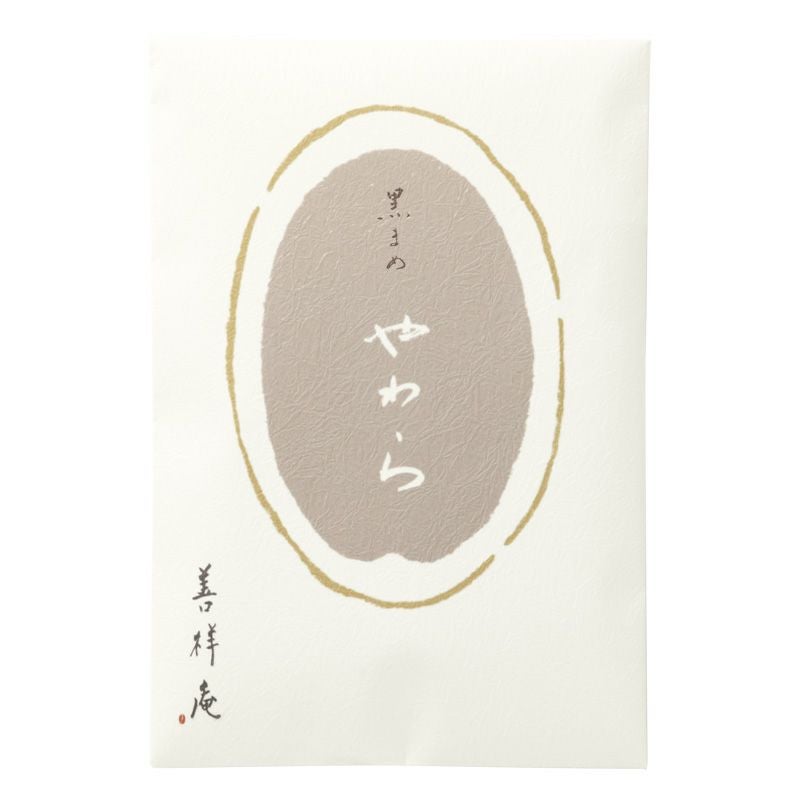 黒まめ
やわら
善祥庵